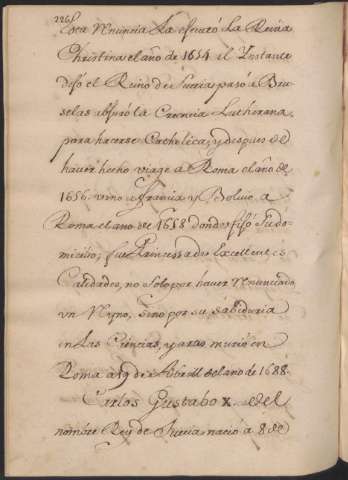 226
esta Renuncia la efectuó La Reina
Christina el año de 1654 il Ynstante
dejó el Reino de Suecia pasó a Bru
selas abjuró la Crencia Lutherana,
para hacerse Catholica, y despues de
haver hecho viage a Roma el año de
1656. vino a francia y Bolvio a
Roma el año de 1658 donde fijó Su do-
micilio, fue Princesa de Excellentes
Calidades, no Solo por haver Renunciado
vn Reyno, Sino por su Sabiduria
en Las Ciencias, y artes murió en
Roma a 19 de Abrill del año de 1688.
Carlos Gustabo X. de el
nombre Rey de Suecia nació a 8 de